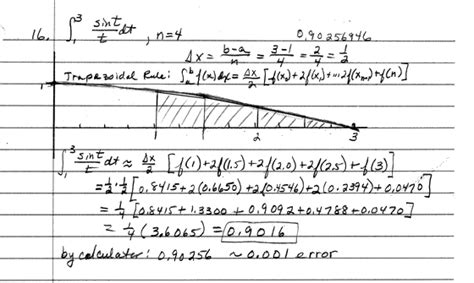 16. ∫₁³ sin t/t dt, n=4 0.90256946
Δx = b-a/n = 3-1/4 = 2/4 = 1/2
Trapezoidal Rule: ∫ₐᵇ f(x)dx = Δx/2 [f(x₀)+2f(x₁)+...2f(xₙ₋₁)+f(n)]
1
1 2 3
∫₁³ sin t/t dt ≈ Δx/2 [f(1)+2f(1.5)+2f(2.0)+2f(2.5)+f(3)]
= 1/2 · 1/2 [0.8415+2(0.6650)+2(0.4546)+2(0.2394)+0.0470]
= 1/4 [0.8415+1.3300+0.9092+0.4788+0.0470]
= 1/4 (3.6065) = 0.9016
by calculator: 0.90256 ~0.001 error